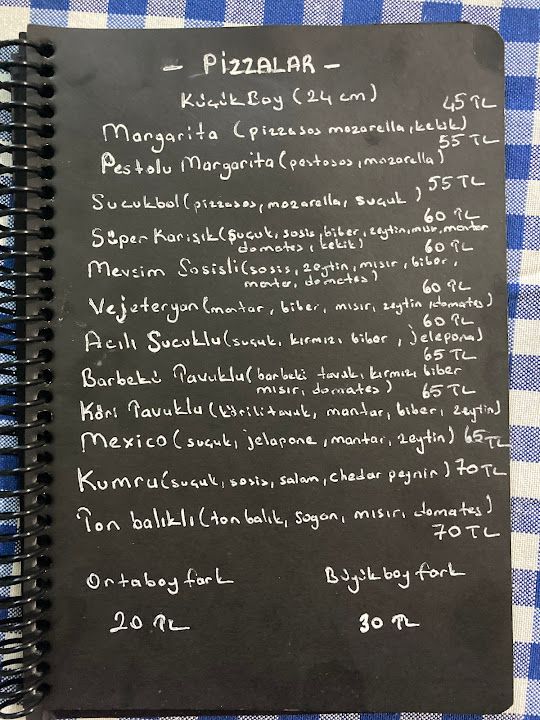 - PİZZALAR -
KüçükBoy (24 cm)
45 TL
Margarita (pizzasos mozarella, kekik)
55 TL
Pestolu Margarita (pestosos, mozarella)
55 TL
Sucukbol (pizzasos, mozarella, suçuk)
60 TL
Süper Karışık (suçuk, sosis, biber, zeytin, mısır, mantar
domates, kekik) 60 TL
Mevsim Sosisli (sosis, zeytin, mısır, biber,
mantar, domates)
60 TL
Vejeteryan (mantar, biber, mısır, zeytin, domates)
60 TL
Acılı Sucuklu (suçuk, kırmızı biber, jelepone)
65 TL
Barbekü Tavuklu (barbekü tavuk, kırmızı biber
mısır, domates) 65 TL
Köri Tavuklu (körili tavuk, mantar, biber, zeytin)
Mexico (suçuk, jelapone, mantar, zeytin) 65 TL
Kumru (suçuk, sosis, salam, chedar peynir) 70 TL
Ton balıklı (ton balık, soğan, mısır, domates)
70 TL
Ortaboy fark Büyükboy fark
20 TL 30 TL